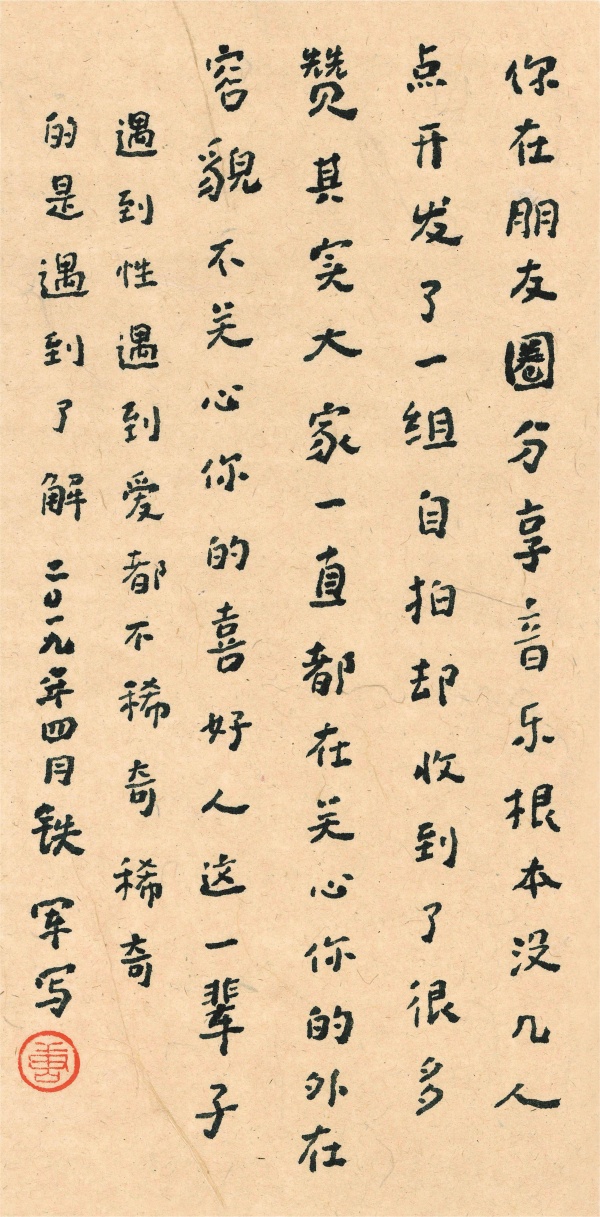 你在朋友圈分享音乐根本没几人
点开发了一组自拍却收到了很多
赞其实大家一直都在关心你的外在
容貌不关心你的喜好人这一辈子
遇到性遇到爱都不稀奇稀奇
的是遇到了解二〇一九年四月铁军写